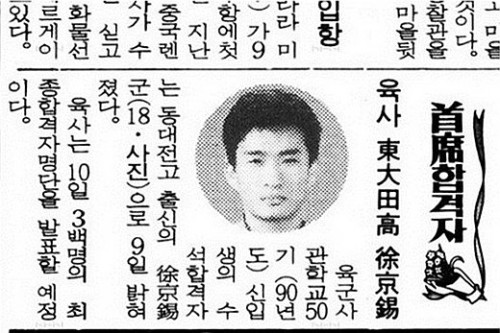 것이다.
찰관을
마을뒷
입항
다라미
가 9
항에첫
지난
중국렌
사가 수
싣고
화물선
르게이
있다.
首席합격자
육사 東大田高 徐京錫
육군사
관학교50
기(90년
도) 신입
생의 수
석합격자
는 동대전고 출신의 徐京錫
군(18·사진)으로 9일 밝혀
졌다.
육사는 10일 3백명의 최
종합격자명단을 발표할 예정
이다.